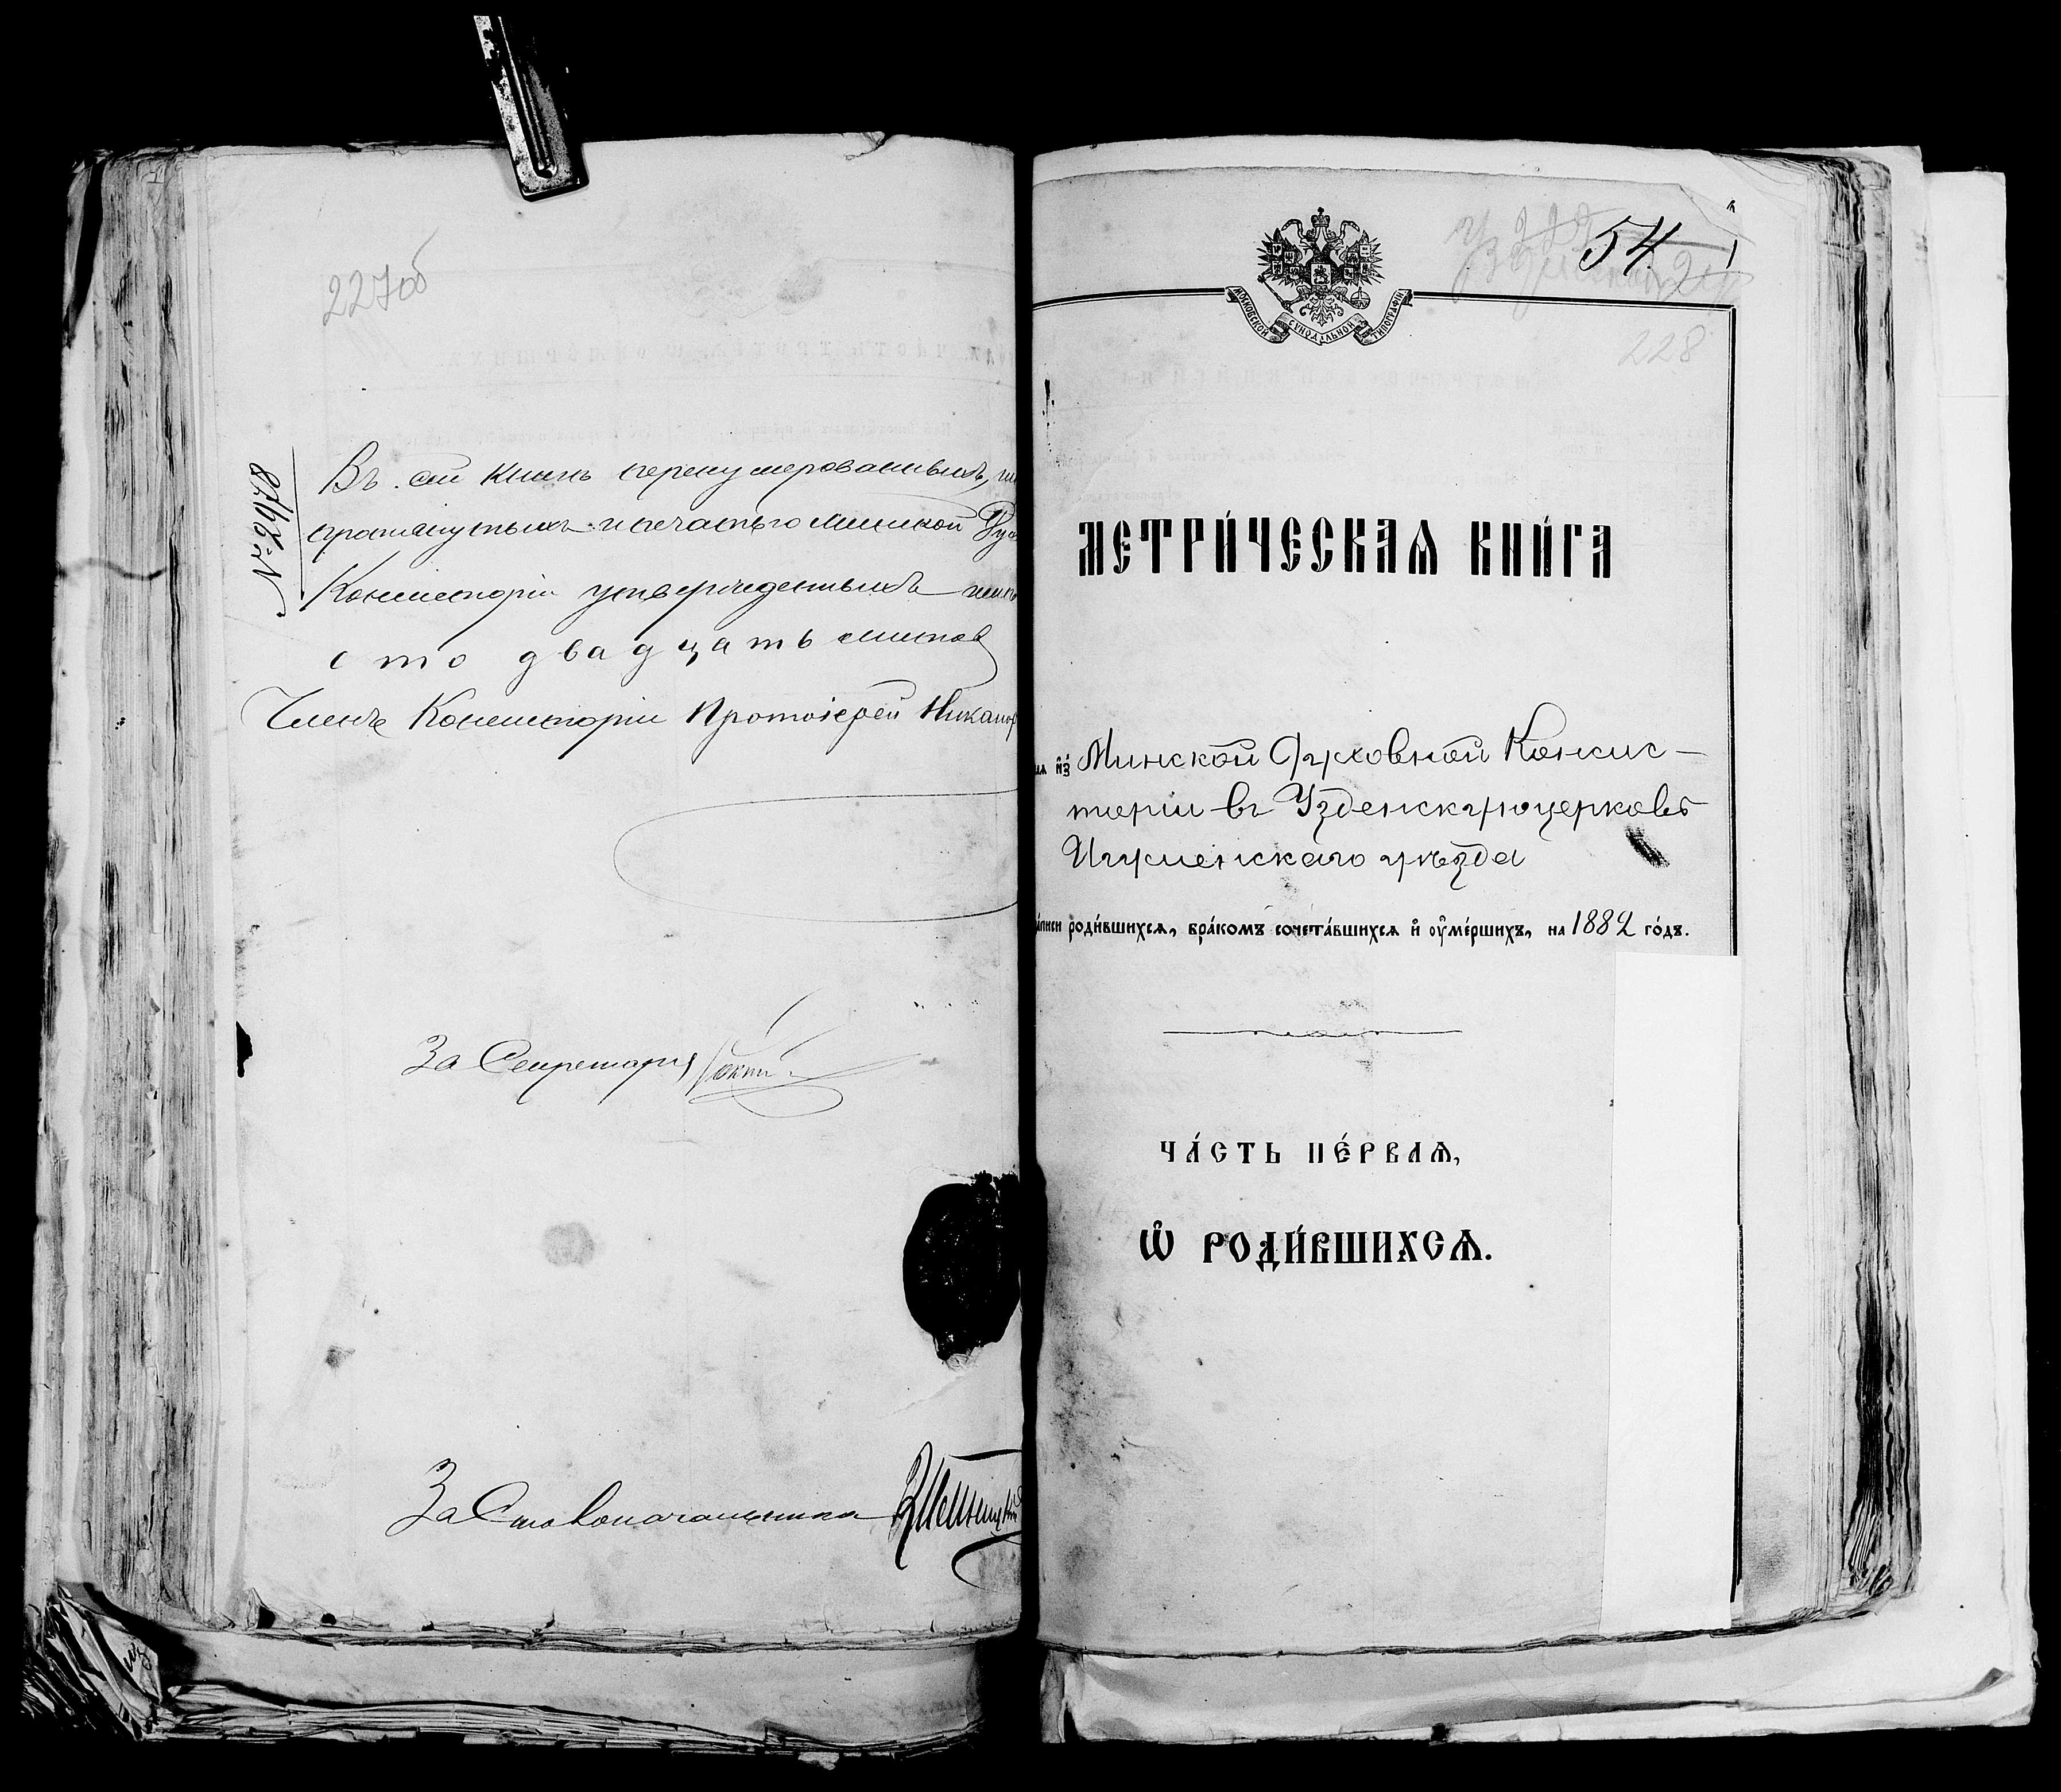 227об
№ 2178
Въ сей книгѣ перенумерованныхъ,
прошнурованныхъ и печатью Минской
Консисторіи утвержденныхъ
сто двадцать листовъ
Членъ Консисторіи Протоіерей Никанор
За Секретаря
За Столоначальника
54
1
МОСКОВСКОЙ СѴНОДАЛЬНОЙ ТИПОГРАФІИ
228
МЕТРИ́ЧЕСКАѦ КНИ́ГА
и҆з̾ Минской Духовной Консис-
торіи въ Узденскую церковь
Игуменскаго уѣзда
роди́вшихсѧ, бра́комъ сочета́вшихсѧ и҆ ᲂу҆ме́ршихъ, на 1882 го́дъ.
ЧА́СТЬ ПЕ́РВАѦ,
Ѽ РОДИ́ВШИХСѦ.